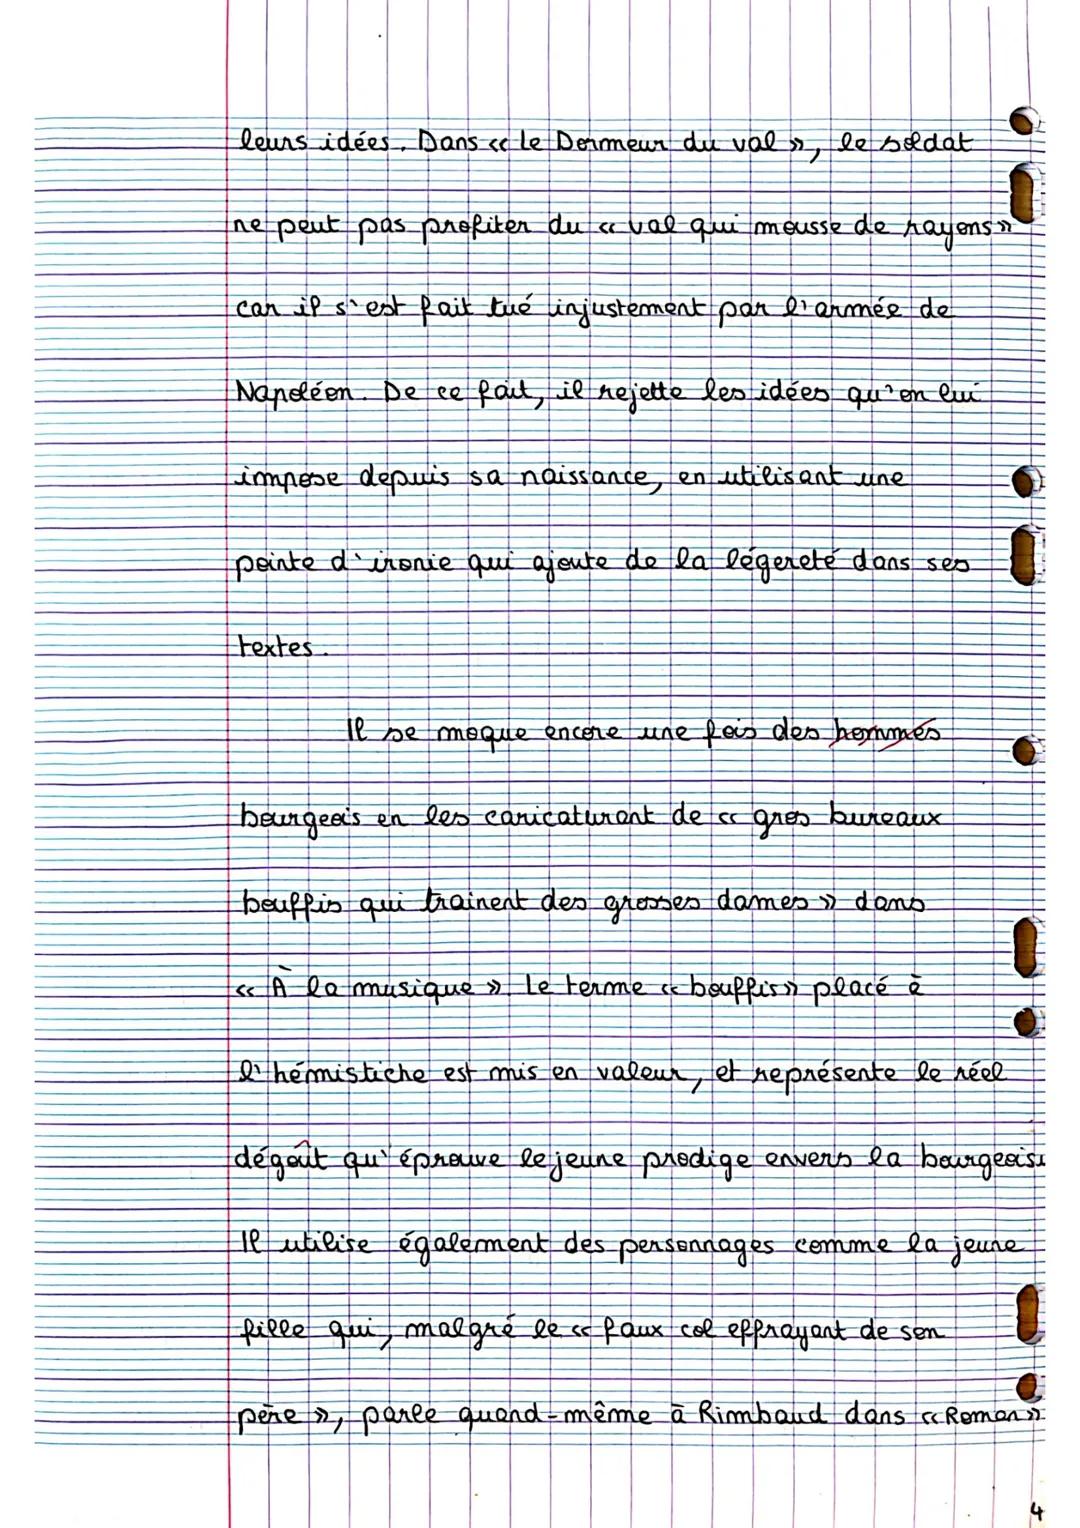 leurs idées. Dans « Le Dormeur du val », le soldat
ne peut pas profiter du « val qui mousse de rayons »
car il s'est fait tué injustement par l'armée de
Napoléon. De ce fait, il rejette les idées qu'on lui
impose depuis sa naissance, en utilisant une
pointe d'ironie qui ajoute de la légereté dans ses
textes.
Il se moque encore une fois des hommes
bourgeois en les caricaturant de « gros bureaux
bouffis qui trainent des grosses dames » dans
« À la musique ». Le terme « bouffis » placé à
l'hémistiche est mis en valeur, et représente le réel
dégoût qu'éprouve le jeune prodige envers la bourgeoisi
Il utilise également des personnages comme la jeune
fille qui, malgré le « faux col effrayant de son
père », parle quand-même à Rimbaud dans « Roman »
4